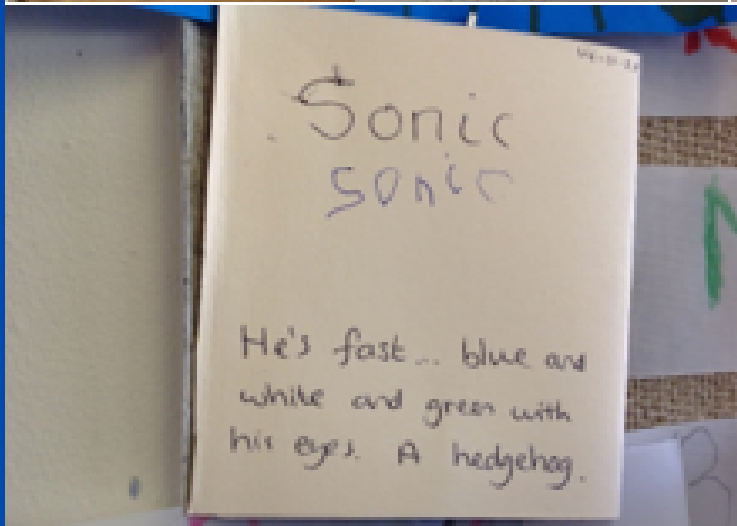 Sonic
sonic
He's fast... blue and
white and green with
his eyes. A hedgehog.